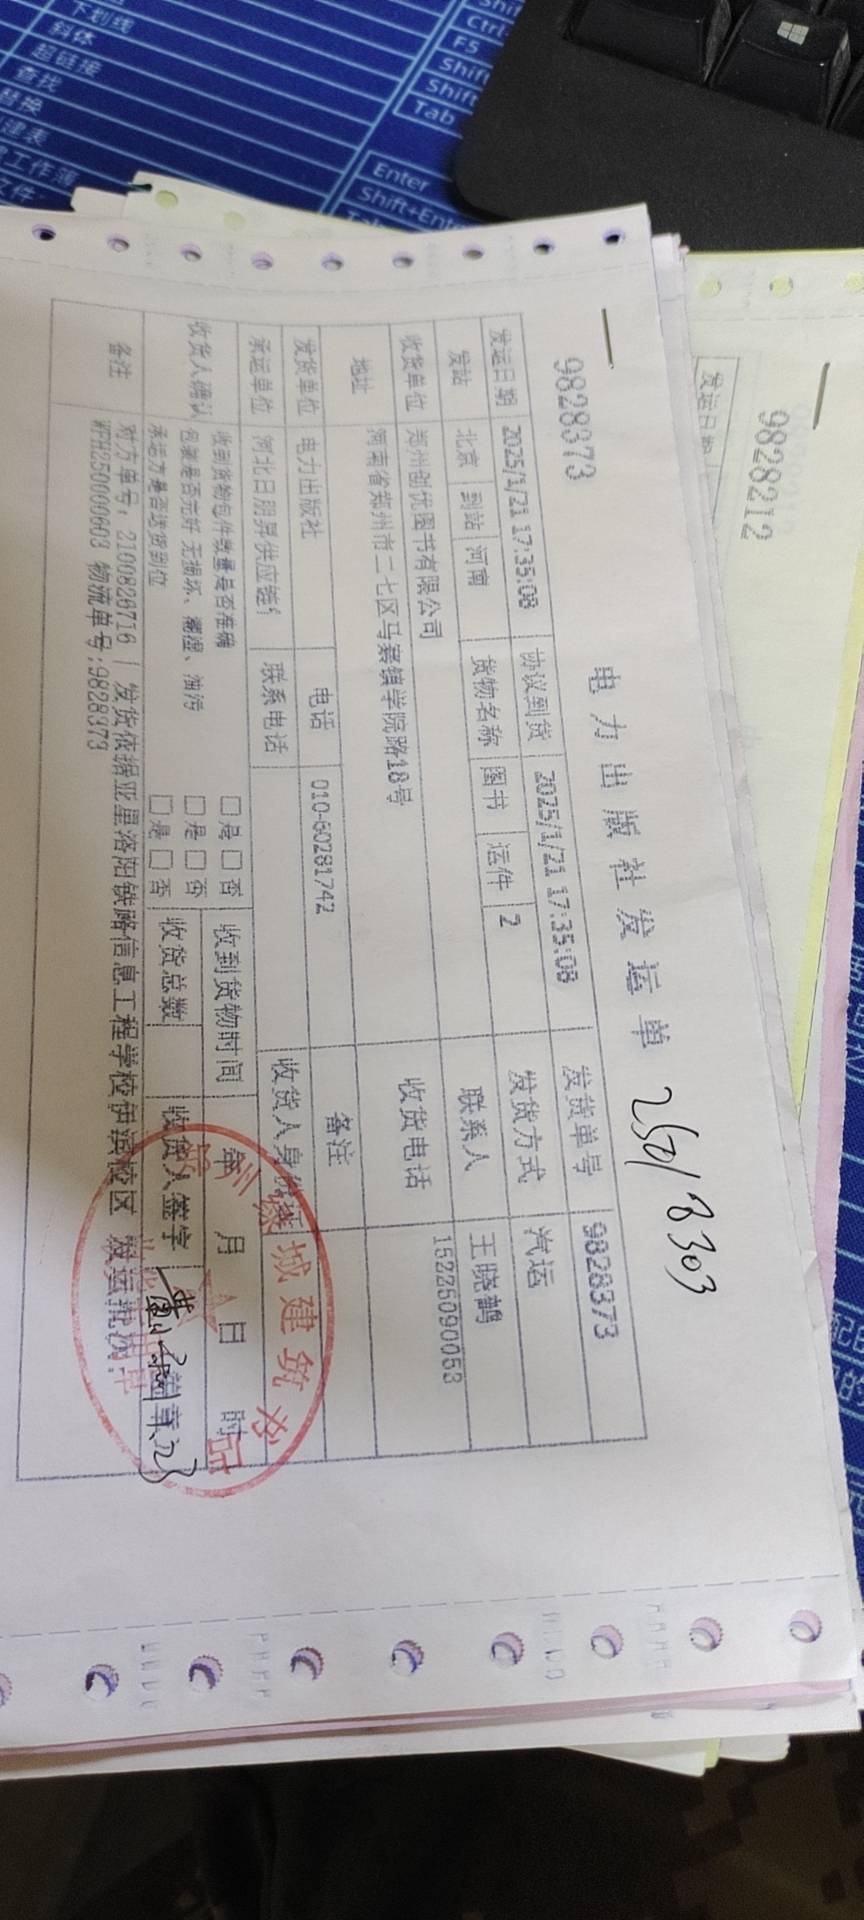 9828373
电力出版社发运单 25018303
发运日期 2025/1/21 17:35:08 协议到货 2025/1/21 17:35:08 发货单号 9828373
发站 北京 到站 河南 货物名称 图书 运件 2 发货方式 汽运
收货单位 郑州创优图书有限公司 联系人 王晓鹤
地址 河南省郑州市二七区马寨镇学院路18号 收货电话 15225090053
发货单位 电力出版社 电话 010-60281742 备注
承运单位 河北日朋昇供应链 联系电话 收货人身份证
收货人确认 收到货物包件数量是否准确 □是□否 收到货物时间 年 月 日 时
包装是否完好 无损坏、潮湿、油污 □是□否
承运方是否送货到位 □是□否 收货总数 收货人签字
备注 对方单号: 2100826716 | 发货依据亚星洛阳铁路信息工程学校伊滨校区 发运批次:
WPH250000603 物流单号:9828373
城建筑书店
9828212
发运日期
下划线
斜体
超链接
查找
替换
建表
工作簿
文件
Ctrl
F5
Shift
Shift
Tab
Enter
Shift+Ente